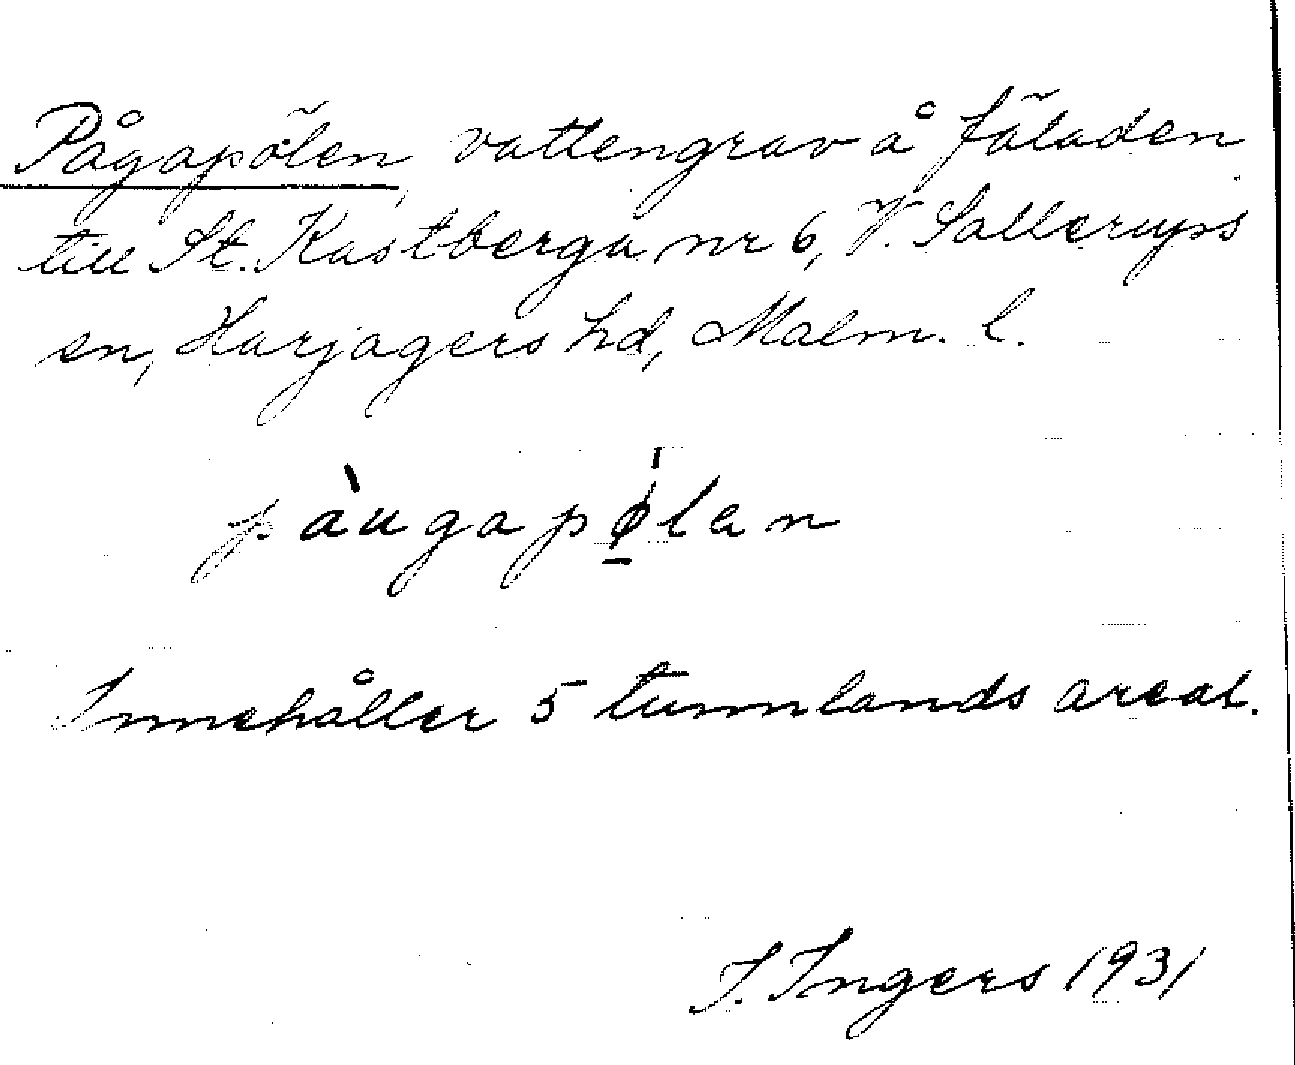 Pågapölen, vattengrav å fäladen
till St. Kastberga nr 6, V. Sallerups
sn, Harjagers hd, Malm. l.
pàugapø̠lan
Innehåller 5 tunnlands areal.
I. Ingers 1931